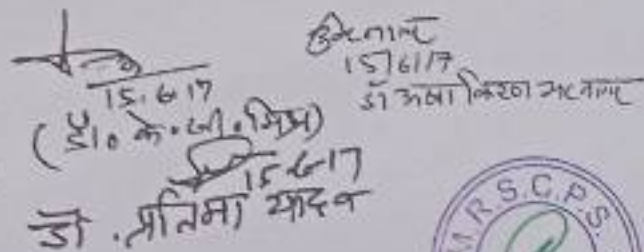 15.6.17
(डॉ० के० जी० मिश्र)
15/6/17
डॉ किरण
15-6-17
डॉ. प्रतिमा यादव
M.R.S.C.P.S.